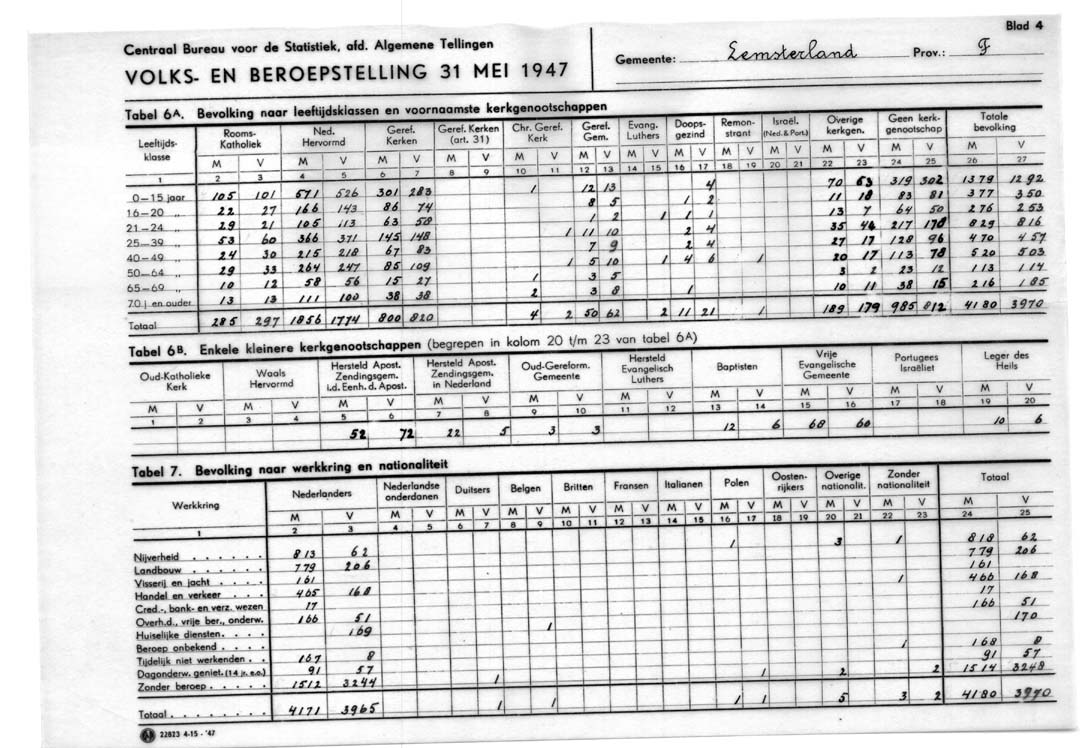 Blad 4
Centraal Bureau voor de Statistiek, afd. Algemene Tellingen
VOLKS- EN BEROEPSTELLING 31 MEI 1947
Gemeente: Lemsterland Prov.: F
Tabel 6A. Bevolking naar leeftijdsklassen en voornaamste kerkgenootschappen
Leeftijds-klasse Rooms-Katholiek Ned. Hervormd Geref. Kerken Geref. Kerken (art. 31) Chr. Geref. Kerk Geref. Gem. Evang. Luthers Doopsgezind Remonstrant Israël. (Ned. & Port.) Overige kerkgen. Geen kerkgenootschap Totale bevolking
M V M V M V M V M V M V M V M V M V M V M V M V M V
1 2 3 4 5 6 7 8 9 10 11 12 13 14 15 16 17 18 19 20 21 22 23 24 25 26 27
0-15 jaar 105 101 571 526 301 283 1 12 13 4 70 53 319 302 1379 1292
16-20 „ 22 27 166 143 86 74 8 5 1 2 11 18 83 81 377 350
21-24 „ 29 21 105 113 63 58 1 2 1 1 1 13 7 64 50 276 253
25-39 „ 53 60 366 371 145 148 1 11 10 2 4 35 44 217 178 829 816
40-49 „ 24 30 215 218 67 83 7 9 2 4 27 17 128 96 470 457
50-64 „ 29 33 264 247 85 109 1 5 10 1 4 6 1 20 17 113 78 520 503
65-69 „ 10 12 58 56 15 27 1 3 5 3 2 23 12 113 114
70 j en ouder 13 13 111 100 38 38 2 3 8 1 10 11 38 15 216 185
Totaal 285 297 1856 1774 800 820 4 2 50 62 2 11 21 1 189 179 985 812 4180 3970
Tabel 6B. Enkele kleinere kerkgenootschappen (begrepen in kolom 20 t/m 23 van tabel 6A)
Oud-Katholieke Kerk Waals Hervormd Hersteld Apost. Zendingsgem. i.d. Eenh. d. Apost. Hersteld Apost. Zendingsgem. in Nederland Oud-Gereform. Gemeente Hersteld Evangelisch Luthers Baptisten Vrije Evangelische Gemeente Portugees Israëliet Leger des Heils
M V M V M V M V M V M V M V M V M V M V
1 2 3 4 5 6 7 8 9 10 11 12 13 14 15 16 17 18 19 20
52 72 22 5 3 3 12 6 68 60 10 6
Tabel 7. Bevolking naar werkkring en nationaliteit
Werkkring Nederlanders Nederlandse onderdanen Duitsers Belgen Britten Fransen Italianen Polen Oosten-rijkers Overige nationalit. Zonder nationaliteit Totaal
M V M V M V M V M V M V M V M V M V M V M V M V
1 2 3 4 5 6 7 8 9 10 11 12 13 14 15 16 17 18 19 20 21 22 23 24 25
Nijverheid 813 62 1 3 1 818 62
Landbouw 779 206 779 206
Visserij en jacht 161 161
Handel en verkeer 465 168 1 466 168
Cred.-, bank- en verz. wezen 17 17
Overh.d., vrije ber., onderw. 166 51 166 51
Huiselijke diensten 169 1 170
Beroep onbekend
Tijdelijk niet werkenden 167 8 1 168 8
Dagonderw. geniet. (14 jr. e.o.) 91 57 91 57
Zonder beroep 1512 3244 1 1 2 2 1514 3248
Totaal 4171 3965 1 1 1 1 5 3 2 4180 3970
22823 4-15-'47